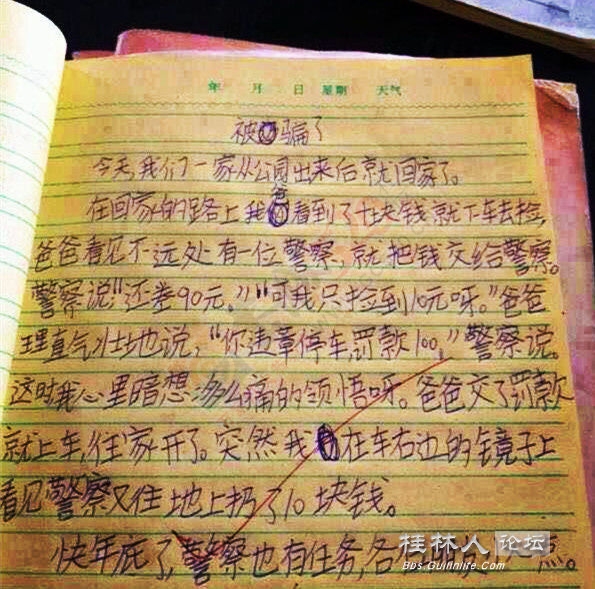 年 月 日 星期 天气
被骗了
今天,我们一家从公园出来后就回家了。
在回家的路上我爸看到了十块钱就下车去捡,
爸爸看见不远处有一位警察,就把钱交给警察。
警察说"还差90元。""可我只捡到10元呀。"爸爸
理直气壮地说,"你违章停车,罚款100,"警察说。
这时我心里暗想:多么痛的领悟呀。爸爸交了罚款
就上车,往家开了。突然我在车右边的镜子上
看见警察又往地上扔了10块钱。
快年底了,警察也有任务,各 点。
桂林人论坛
Bbs.Guilinlife.com